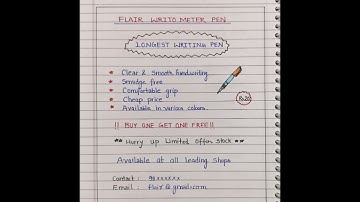 FLAIR WRITO METER PEN
LONGEST WRITING PEN
* Clear & Smooth handwriting.
* Smudge free
* Comfortable grip
* Cheap price
* Available in various colours.
Rs20
!! BUY ONE GET ONE FREE!!
** Hurry up Limited Offer Stock **
Available at all leading shops
Contact : 98xxxxxx
Email : flair@gmail.com